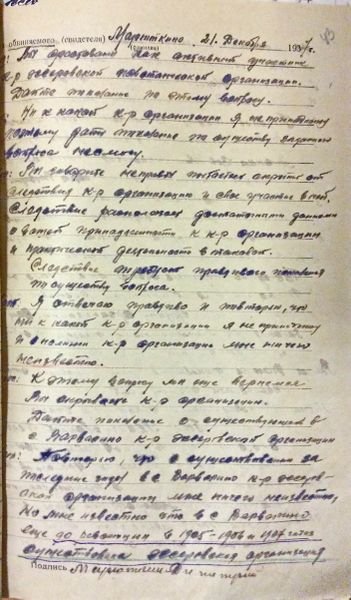 93
обвиняемого (свидетеля) Марюткино 21. Декабря 1937 г.
Вы арестованы как активный участник
к-р эсеровской повстанческой организации.
Дайте показание по этому вопросу.
Ни к какой к-р организации я не принадлежу
поэтому дать показание по существу заданного
вопроса не могу.
Вы говорите неправду пытаетесь скрыть от
следствия к-р организацию и свое участие в ней.
Следствие располагает достаточными данными
о вашей принадлежности к к-р организации
и практической деятельности в таковой.
Следствие требует правдивого показания
по существу вопроса.
Я отвечаю правдиво и повторяю, что
ни к какой к-р организации я не принадлежу
и о наличии к-р организации мне ничего
неизвестно.
К этому вопросу мы еще вернемся
Вы скрываете к-р организацию.
Дайте показание о существующей в
с Варварино к-р эсеровской организации
Повторяю, что о существовании за
последние годы в с Варварино к-р эсеров-
ской организации мне ничего неизвестно,
Но мне известно что в с Варварино
еще до революции в 1905-1906 и 1907 годах
существовала эсеровская организация
Подпись